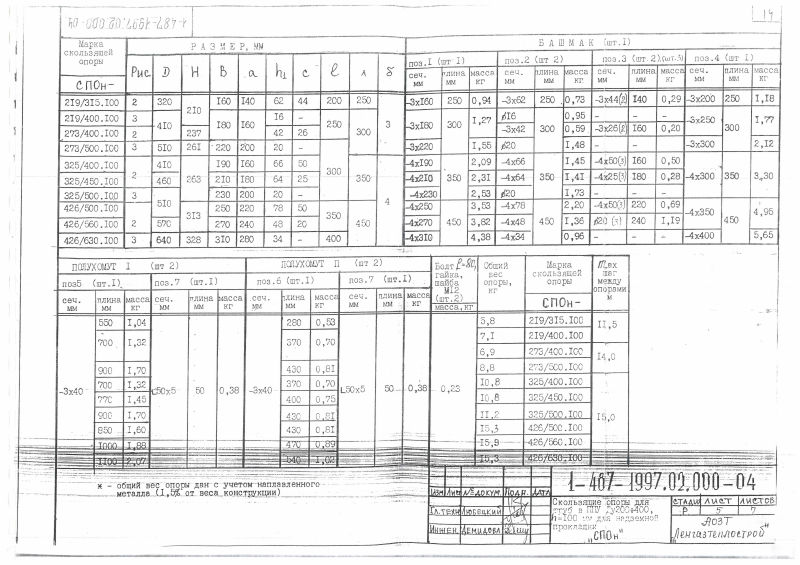 1-487-1997.02.000-04
14
Марка скользящей опоры СПОн-
РАЗМЕР, ММ
БАШМАК (шт.I)
поз.I (шт I) поз.2 (шт I) поз.3 (шт 2) (шт.3) поз.4 (шт I)
Рис D H B a h₁ c ℓ л б
сеч. мм длина мм масса кг сеч. мм длина мм масса кг сеч. мм длина мм масса кг сеч. мм длина мм масса кг
219/315.100 2 320 210 160 140 62 44 200 250 3 -3х160 250 0,94 -3х62 250 0,73 -3х44(2) 140 0,29 -3х200 250 1,18
219/400.100 3 410 180 160 16 - 250 300 -3х180 300 1,27 ϕ16 300 0,95 -3х250 300 1,77
273/400.100 2 237 42 26 -3х42 0,59 -3х26(2) 160 0,20
273/500.100 3 510 261 220 200 20 - -3х220 1,55 ϕ20 1,48 - -3х300 2,12
325/400.100 2 410 263 190 160 66 50 300 350 4 -4х190 350 2,09 -4х66 350 1,45 -4х50(3) 160 0,50 -4х300 350 3,30
325/450.100 460 210 180 64 25 -4х210 2,31 -4х64 1,41 -4х25(3) 180 0,28
325/500.100 3 510 230 200 20 - -4х230 2,53 ϕ20 1,73 -
426/500.100 2 313 250 220 78 50 350 450 -4х250 450 3,53 -4х78 450 2,20 -4х50(3) 220 0,69 -4х350 450 4,95
426/560.100 570 270 240 48 20 -4х270 3,82 -4х48 1,36 ϕ20 (3) 240 1,19
426/630.100 3 640 328 310 280 34 - 400 -4х310 4,38 -4х34 0,96 - -4х400 5,65
ПОЛУХОМУТ I (шт 2)
ПОЛУХОМУТ П (шт 2)
Болт ℓ=80, гайка, шайба М12 (шт.2) масса, кг
Общий вес опоры, кг
Марка скользящей опоры СПОн-
max шаг между опорами м
поз5 (шт.I) поз.7 (шт.I) поз.6 (шт.I) поз.7 (шт.I)
сеч. мм длина мм масса кг сеч. мм длина мм масса кг сеч. мм длина мм масса кг сеч. мм длина мм масса кг
550 1,04 280 0,53 5,8 219/315.100 11,5
700 1,32 370 0,70 7,1 219/400.100
6,9 273/400.100 14,0
900 1,70 430 0,81 8,8 273/500.100
-3х40 700 1,32 ∟50х5 50 0,38 -3х40 370 0,70 ∟50х5 50 0,38 0,23 10,8 325/400.100 15,0
770 1,45 400 0,75 10,8 325/450.100
900 1,70 430 0,81 11,2 325/500.100
850 1,60 430 0,81 15,3 426/500.100
1000 1,88 470 0,89 15,9 426/560.100
1100 2,07 540 1,02 15,3 426/630.100
ж - общий вес опоры дан с учетом наплавленного
металла (1,5% от веса конструкции)
1-487-1997.02.000-04
ИЗМ ЛИС №ДОКУМ. ПОДП. ДАТА
ГЛ.ТЕХН ЛЮБЕЦКИЙ
ИНЖЕН. ДЕМИДОВА
Скользящие опоры для
труб в ППУ Ду200÷400,
h=100 мм для надземной
прокладки
"СПОн"
СТАДИЯ ЛИСТ ЛИСТОВ
Р 5 7
АОЗТ
"Ленгазтеплострой"